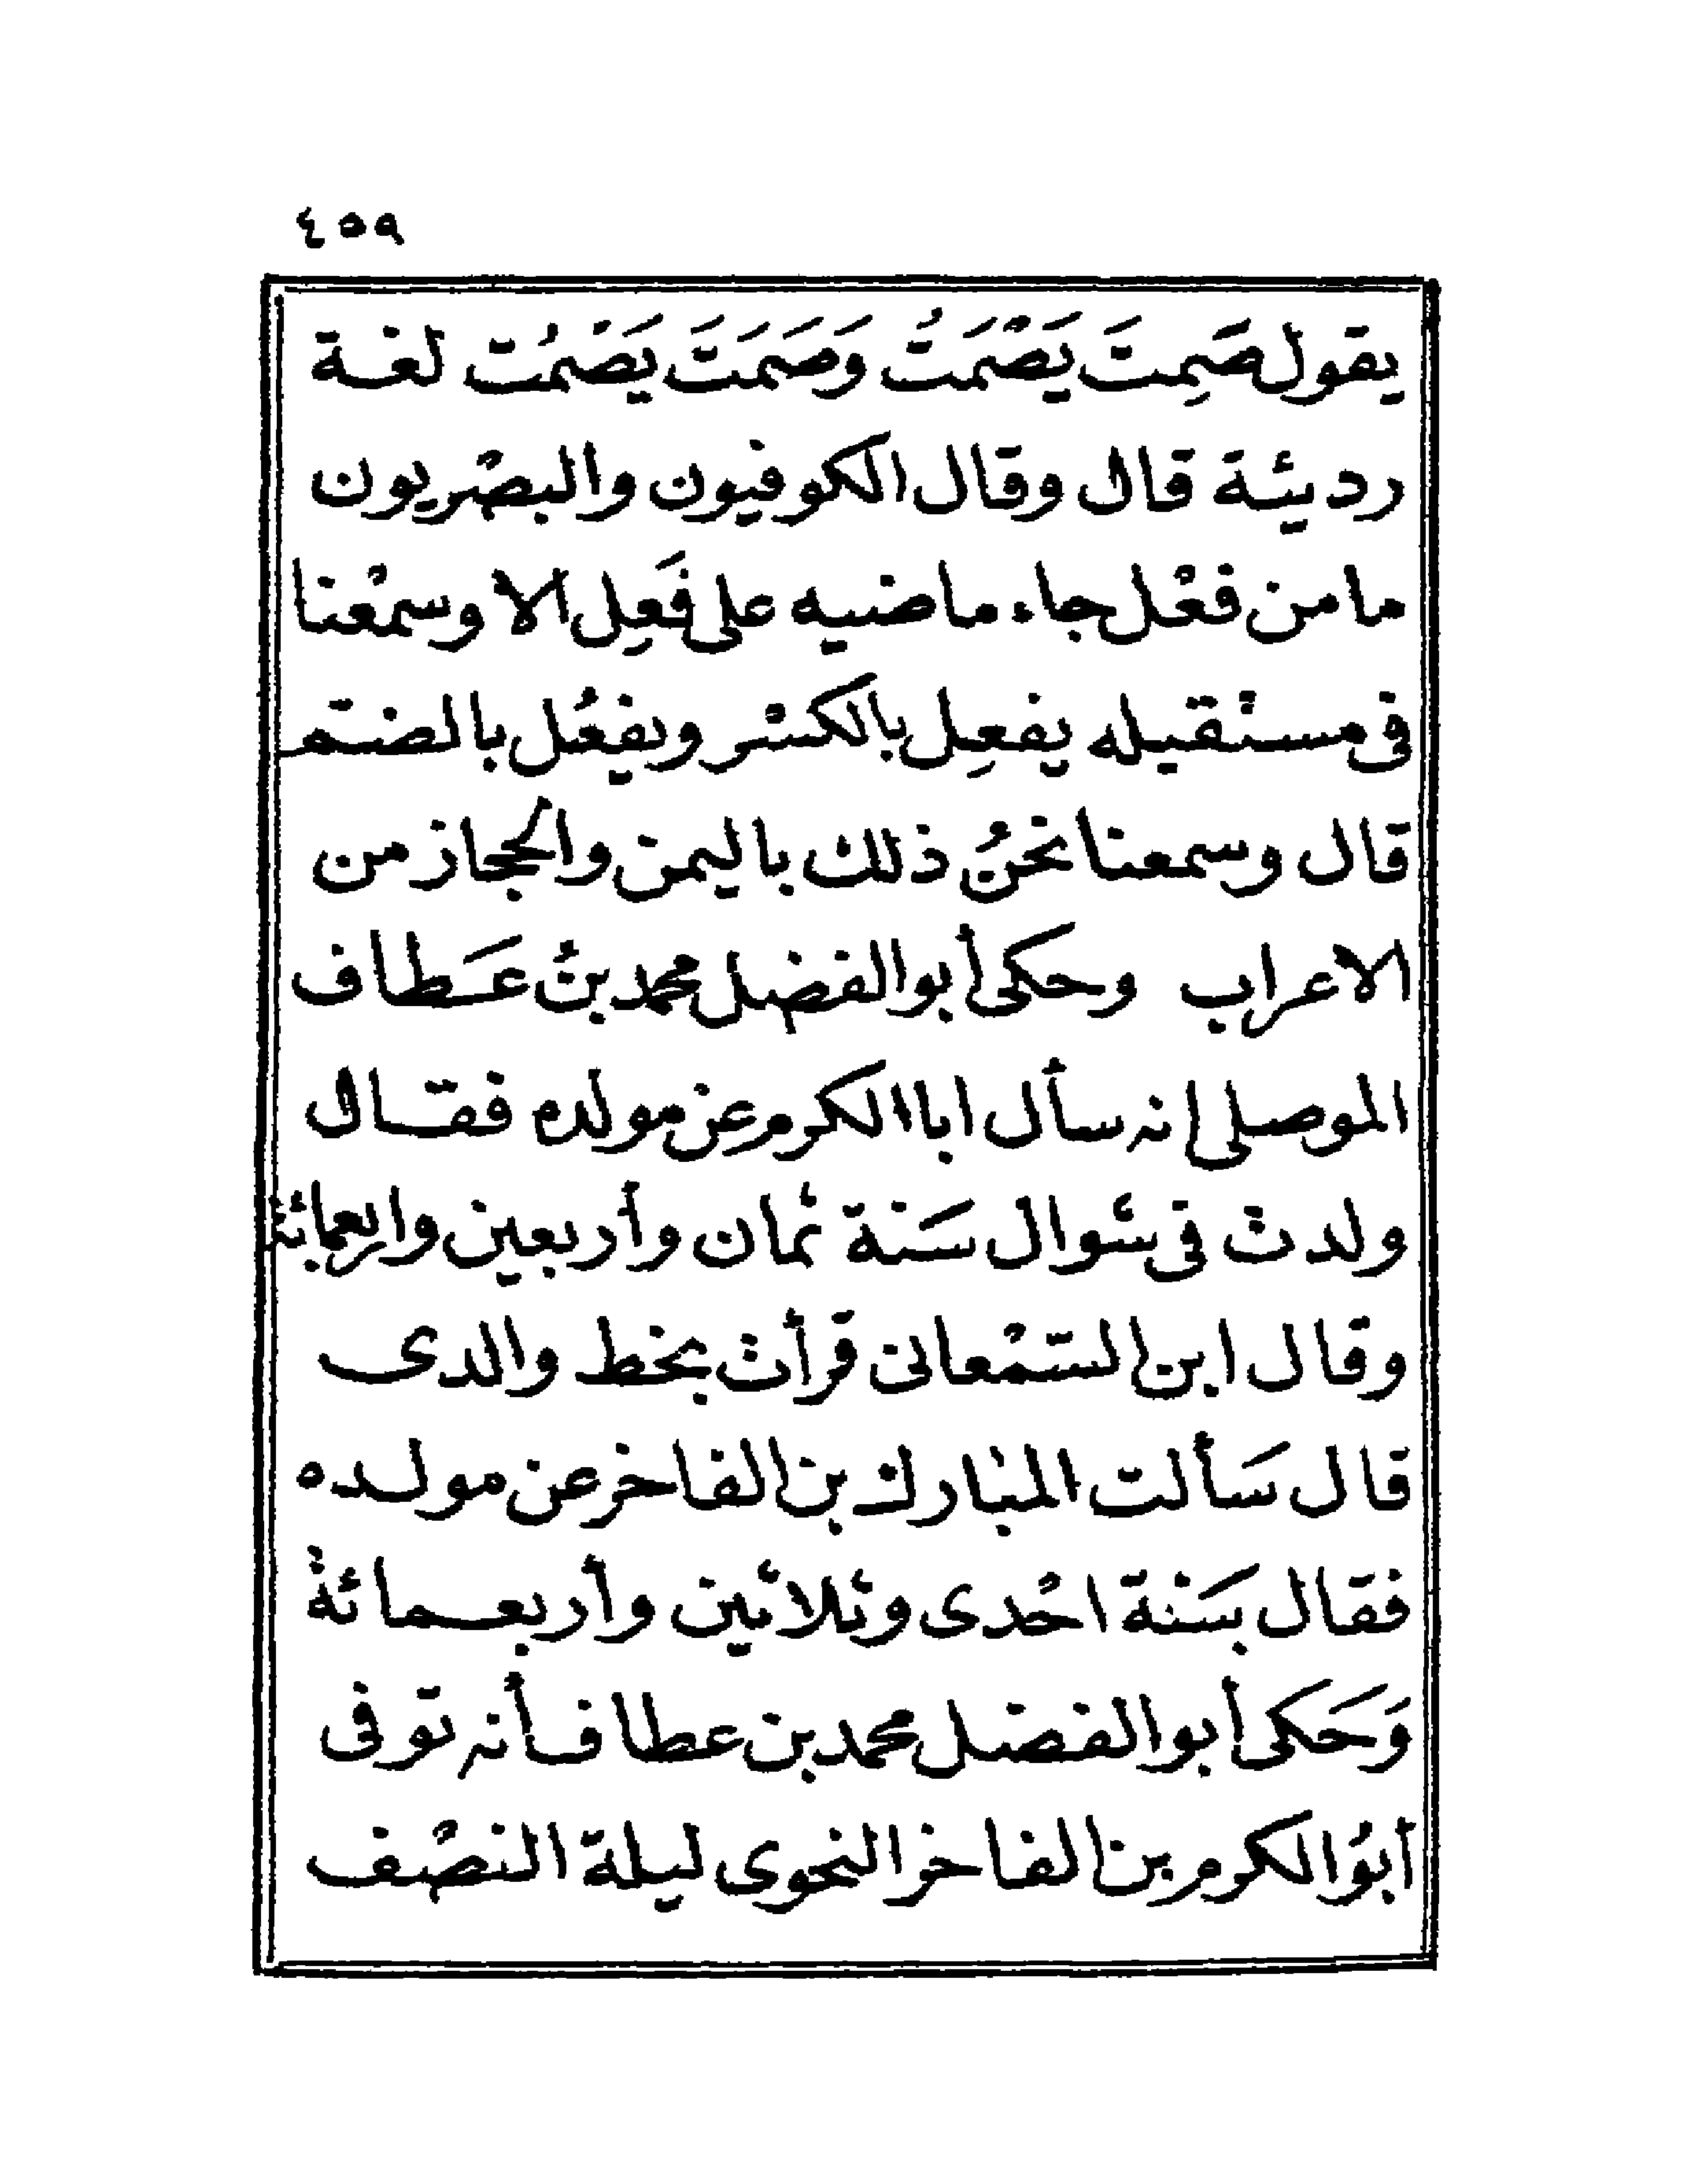 ٤٥٩
يقول صَمِتَ يَصْمَتُ وَصَمَتَ يَصْمُت لغة
رديئة قال وقال الكوفيون والبصْريون
مامن فعْل جاء ماضيه على فَعِل الا وسمْعنا
فى مستقيله يفعِل بالكسْر ويفعُل بالضم
قال وسمعنا نحنُ ذلك باليمن والحجاز من
الاعراب وحكى أبوالفضل محمد بنْ عَطاف
الموصلى انه سأل ابا الكرم عن مولده فقال
ولدت فى شوال سَنة ثمان وأربعين واربعمائة
وقال ابن السّمْعانى قرأت بخط والدى
قال سَألت المبارك بن الفاخر عن مولده
فقال بسَنة احْدى وثلاثين وأربعمائة
وَحَكى أبوالفضل محمد بن عطاف أنه توفى
أبوُ الكرم بن الفاخر النحوى ليلة النصْف